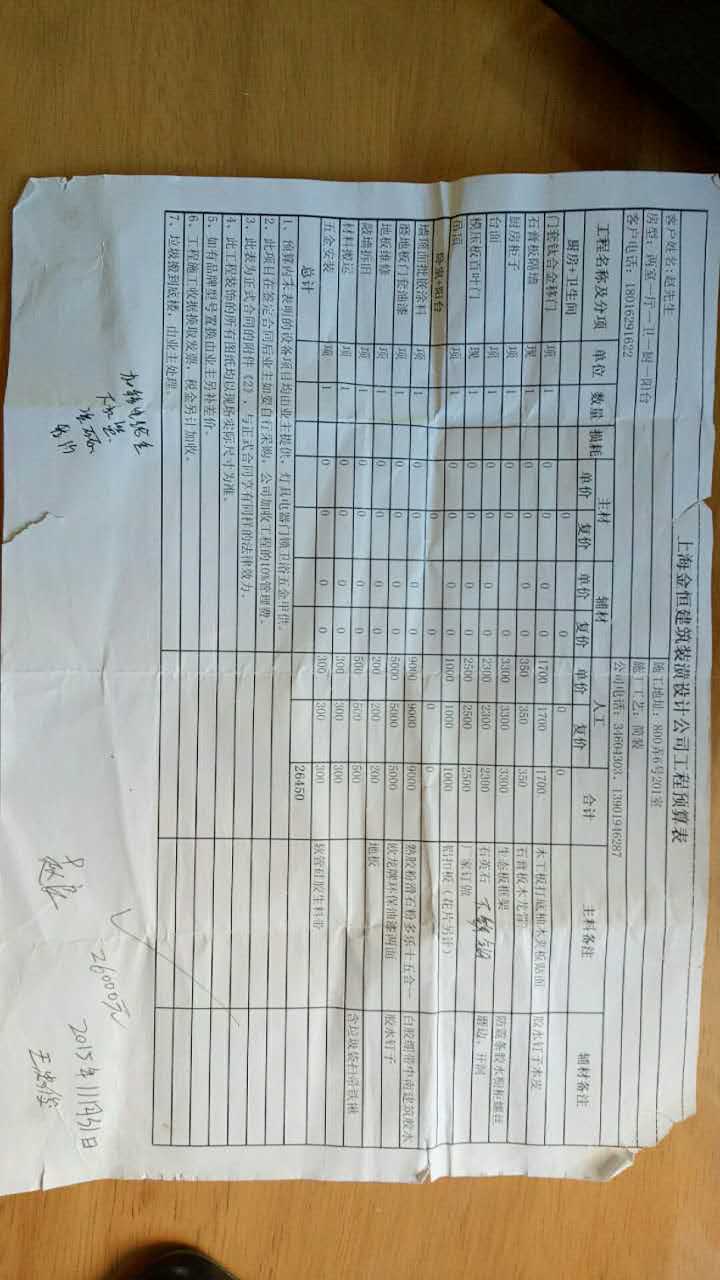 上海金恒建筑装潢设计公司工程预算表
客户姓名:赵先生 施工地址:800弄6号201室
房型:两室一厅一卫一厨一阳台 施工工艺:简装
客户电话:18016291622 公司电话:34604303、13901946287
工程名称及分项 单位 数量 损耗 主材 辅材 人工 合计 主料备注 辅材备注
单价 复价 单价 复价 单价 复价
厨房+卫生间 0 0 0 0
门套钛合金移门 项 1 0 0 0 0 1700 1700 1700 木工板打底柚木夹板贴面 胶水钉子木皮
石膏板隔墙 现 1 0 0 0 0 350 350 350 石膏板木龙骨
厨房柜子 项 1 0 0 0 0 3300 3300 3300 生态板框架 防霉条胶水橱柜螺丝
台面 项 1 0 0 0 0 2300 2300 2300 石英石 磨边、开洞
模压板百叶门 现 1 0 0 0 0 2500 2500 2500 厂家订做
吊顶 项 1 0 0 0 0 1000 1000 1000 铝扣板(花片另计)
卧室+阳台 0 0 0 0
墙顶面批嵌涂料 项 1 0 0 0 0 9000 9000 9000 熟胶粉滑石粉多乐士五合一 白胶绷带中南建筑胶水
磨地板门套油漆 项 1 0 0 0 0 5000 5000 5000 欧龙牌环保油漆两面 胶水钉子
地板维修 项 1 0 0 0 0 200 200 200 地板
敲墙拆旧 项 1 0 0 0 0 500 500 500 含垃圾袋扫帚铁锹
材料搬运 项 1 0 0 0 0 300 300 300
五金安装 项 1 0 0 0 0 300 300 300 软管硅胶生料带
总计 26450
1、预算内未表明的设备项目均由业主提供,灯具电器门锁卫浴五金甲供。
2、此项目在签定合同后业主如要自行采购,公司加收工程的10%管理费。
3、此表为正式合同的附件(2),与正式合同享有同样的法律效力。
4、此工程装饰的所有图纸均以现场实际尺寸为准。
5、如有品牌型号置换由业主另补差价。
6、工程施工收据换取发票,税金另计加收。
7、垃圾搬到底楼,由业主处理。
26000元
2015年11月31日